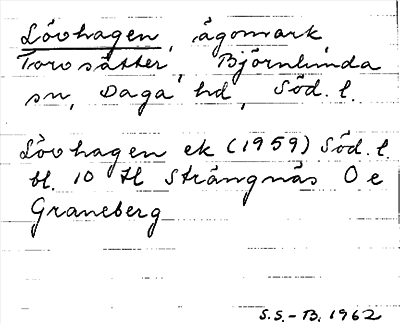 Lövhagen, ägomark,
Torosätter, Björnlunda
sn, Daga hd, Söd. l.
Lövhagen ek (1959) Söd. l.
bl. 10 H Strängnäs O e
Graneberg
S.S.-B. 1962